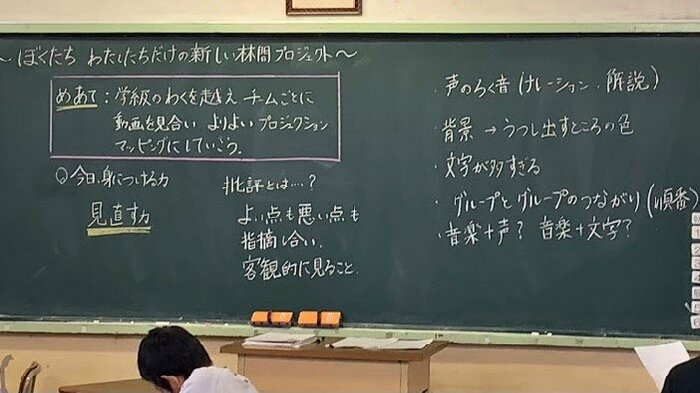 ～ぼくたち わたしたちだけの新しい林間プロジェクト～
めあて：学級のわくを越え チームごとに
動画を見合い よりよい プロジェクション
マッピングにしていこう。
今日、身につける力
見直す力
批評とは‥‥？
よい点も悪い点も
指摘し合い、
客観的に見ること。
・声のろく音（ナレーション・解説）
・背景 → うつし出すところの色
・文字が多すぎる
・グループとグループのつながり（順番）
・音楽＋声？ 音楽＋文字？